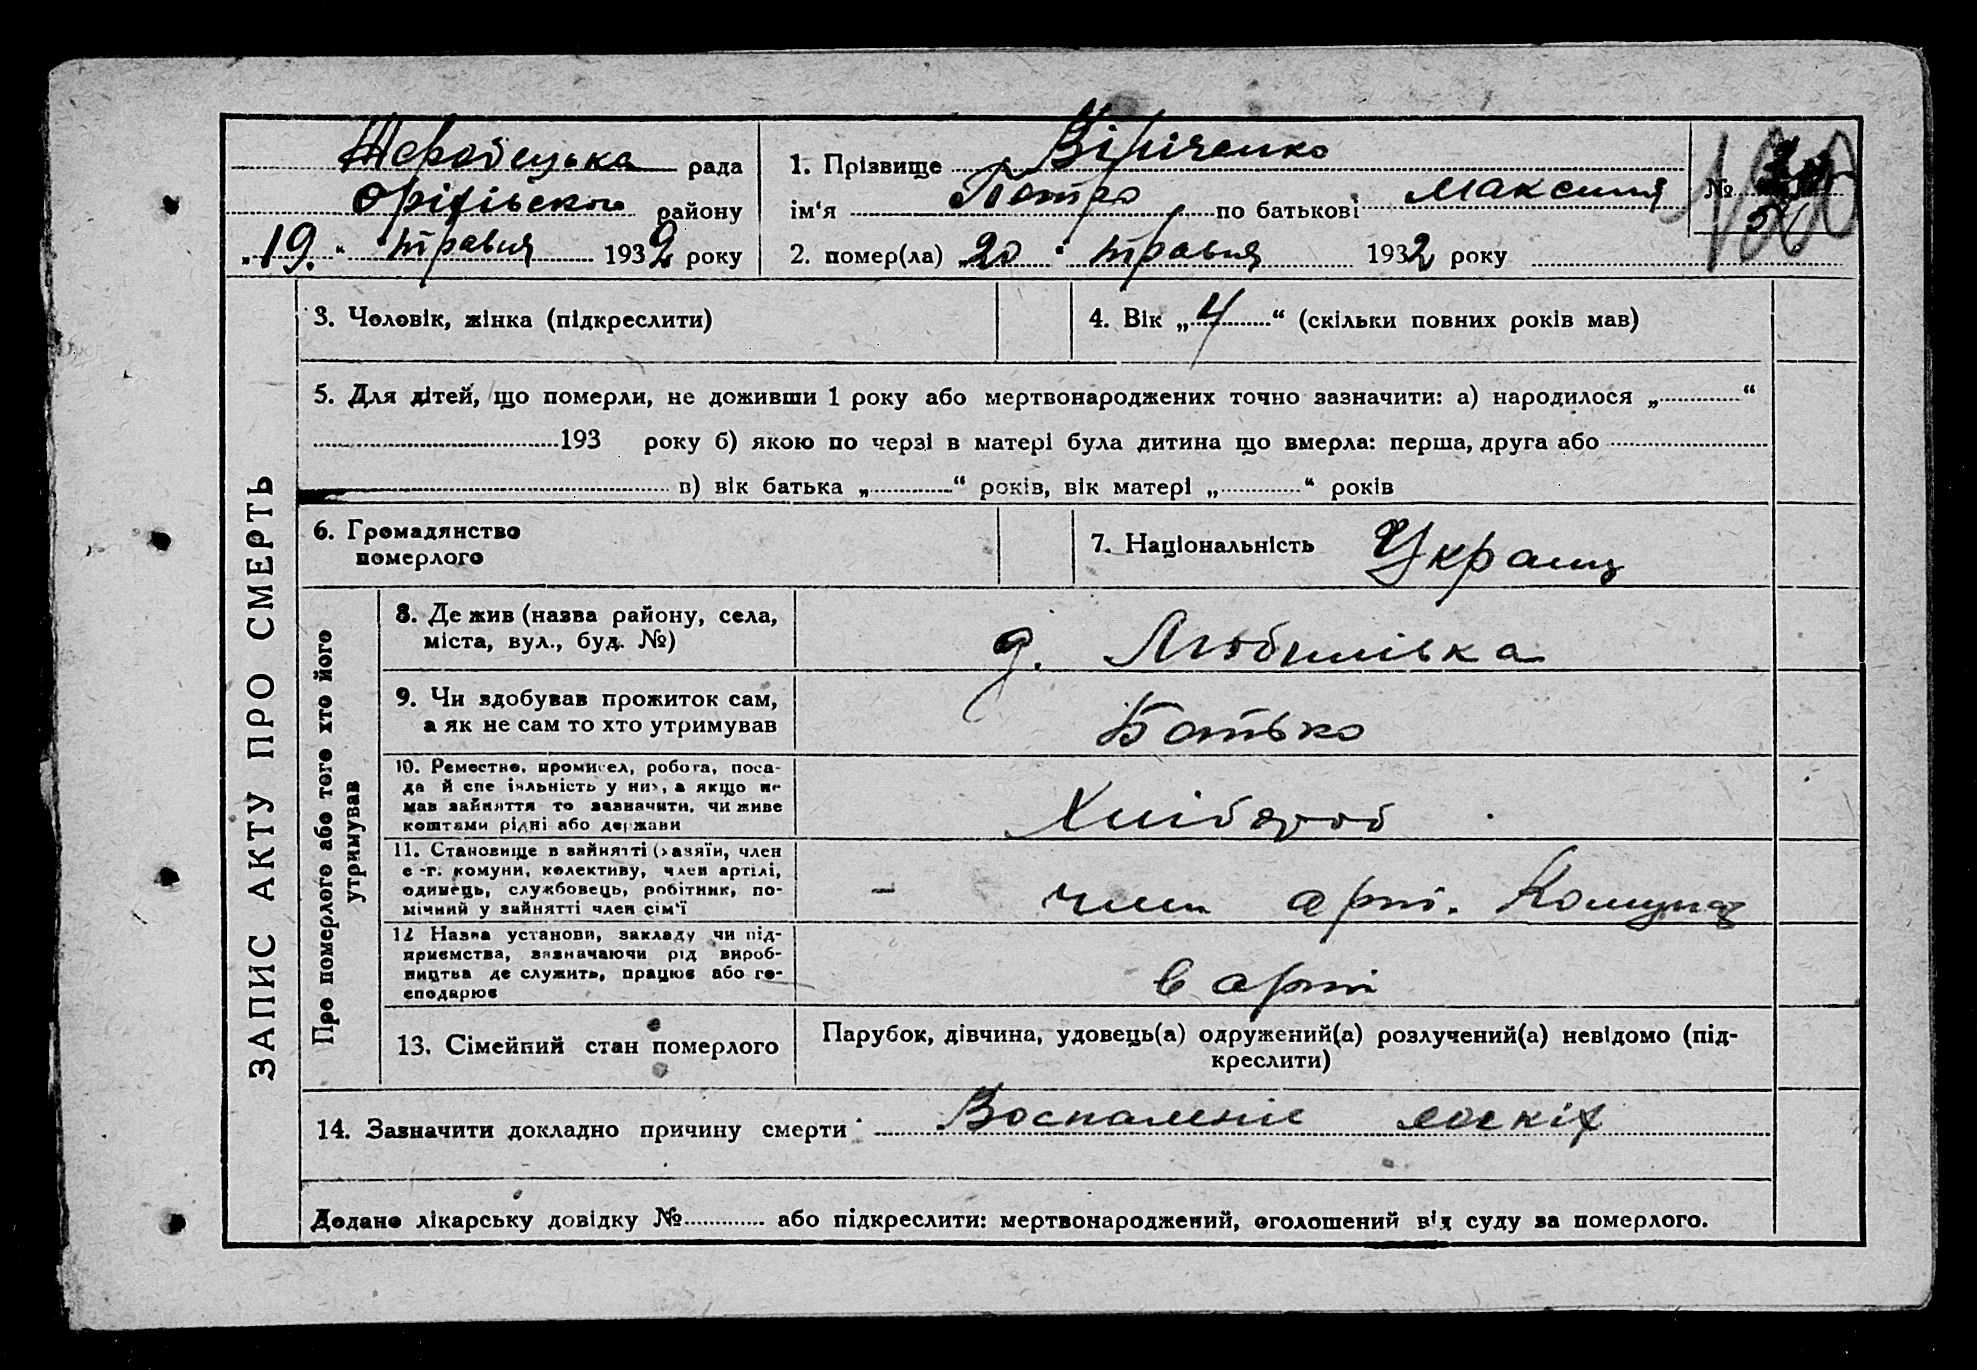 Жеребецька рада
Оріхівського району
„19.“ травня 1932 року
1. Прізвище Віріченко
ім'я Петро по батькові Максимів
2. помер(ла) „20“ травня 1932 року
№
ЗАПИС АКТУ ПРО СМЕРТЬ
3. Чоловік, жінка (підкреслити)
4. Вік „4“ (скільки повних років мав)
5. Для дітей, що померли, не доживши 1 року або мертвонароджених точно зазначити: а) народилося „ “
193 року б) якою по черзі в матері була дитина що вмерла: перша, друга або
в) вік батька „ “ років, вік матері „ “ років
6. Громадянство
померлого
7. Національність Украиц
Про померлого або того хто його
утримував
8. Де жив (назва району, села,
міста, вул., буд. №)
д. Любимівка
9. Чи здобував прожиток сам,
а як не сам то хто утримував
Батько
10. Ремество, промисел, робота, поса-
да й спеціяльність у них, а якщо не
мав зайняття то зазначити, чи живе
коштами рідні або держави
Хлібороб
11. Становище в зайнятті (хазяїн, член
с.-г. комуни, колективу, член артілі,
одинець, службовець, робітник, по-
мічний у зайнятті член сім'ї
– член арт. Комунар
12 Назва установи, закладу чи під-
приємства, зазначаючи рід вироб-
ництва де служить, працює або го-
сподарює
в арті
13. Сімейний стан померлого
Парубок, дівчина, удовець(а) одружений(а) розлучений(а) невідомо (під-
креслити)
14. Зазначити докладно причину смерти Воспаление
Додано лікарську довідку № або підкреслити: мертвонароджений, оголошений від суду за померлого.